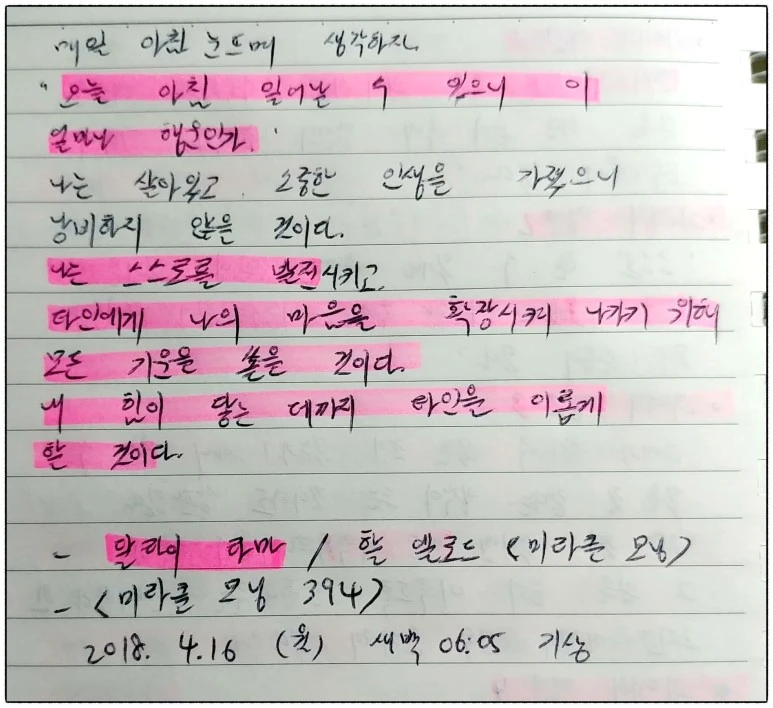 매일 아침 눈뜨며 생각하자.
"오늘 아침 일어날 수 있으니 이
얼마나 행운인가."
나는 살아있고, 소중한 인생을 가졌으니
낭비하지 않을 것이다.
나는 스스로를 발전시키고,
타인에게 나의 마음을 확장시켜 나가기 위해
모든 기운을 쏟을 것이다.
내 힘이 닿는 데까지 타인을 이롭게
할 것이다.
- 달라이 라마 / 할 엘로드 <미라클 모닝>
- <미라클 모닝 394>
2018. 4.16 (월) 새벽 06:05 기상